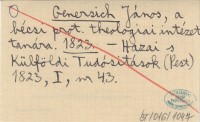 O Genersich János, a
bécsi prot. theologiai intézet
tanára. 1823. — Hazai s
Külföldi Tudósítások (Pest)
1823, I, nr 43.